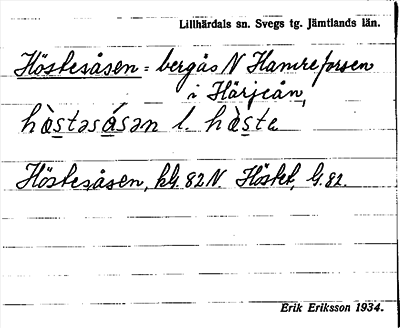 Lillhärdals sn. Svegs tg. Jämtlands län.
Höstesåsen = bergås N Hamreforsen
i Härjeån,
hòstəsásən l. hòste
Höstesåsen, kG. 82 N. Höstet, G. 82.
Erik Eriksson 1934.